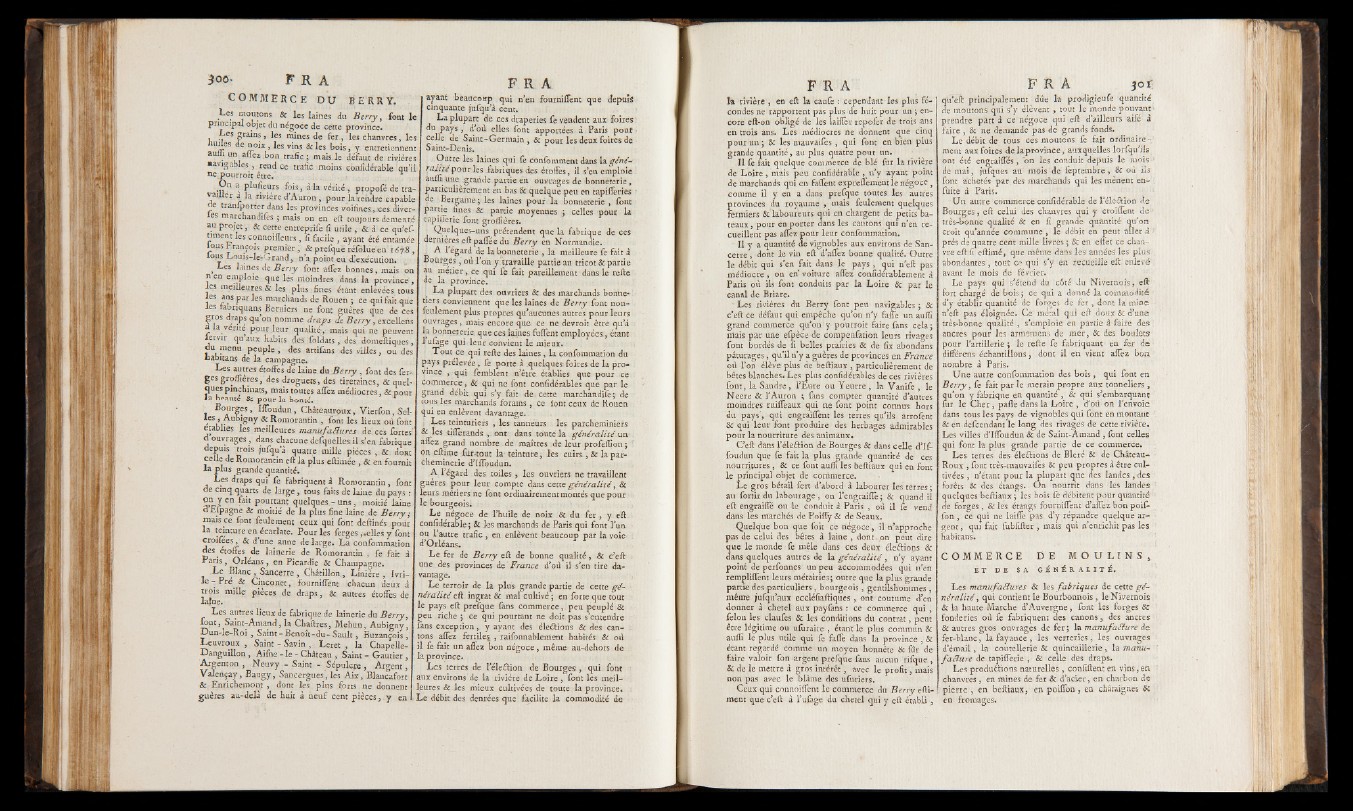 300 F R A
COMMERCE DU BERRY.
Les moutons & les laines du Berry, font le
principal objet du négoce de cette province.
Les grains, les mines de fer, les chanvres, les
huiles de noix, les vins & les bois, y entretiennent
auſſi un aſſez bon trafic; mais le défaut de rivières
navigables, rend ce trafic moins conſidérable qu'il
ne pourroit être.
On a pluſieurs fois, à la vérité, propoſé de tra-
vailler à la rivière d'Auron, pour la rendre capable
de tranſporter dans les provinces voiſines, ces diver-
ſes marchandiſes; mais on en eſt toujours demeuré
au projet, & cette entrepriſe ſi utile, & à ce qu'eſ-
timent les connoiſſeurs, ſi facile, ayant été entamée
ſous François premier, & preſque réſolue en 1678,
ſous Louis-le-Grand, n'a point eu d'exécution.
Les laines de Berry ſont aſſez bonnes, mais on
n'en emploie que les moindres dans la province,
les meilleures & les plus fines étant enlevées tous
les ans par les marchands de Rouen; ce qui fait que
les fabriquans Berruiers ne font guères que de ces
gros draps qu'on nomme draps de Berry, excellens
à la vérité pour leur qualité, mais qui ne peuvent
ſervir qu'aux habits des ſoldats, des domeſtiques,
du menu peuple, des artiſans des villes, ou des
habitans de la campagne.
Les autres étoffes de laine du Berry, ſont des ſer-
ges groſſières, des droguets, des tiretaines, & quel-
ques pinchinats, mais toutes aſſez médiocres, & pour
la beauté & pour la bonté.
Bourges, Iſſoudun, Châteauroux, Vierſon, Sel-
les, Aubigny & Romorantin, ſont les lieux où ſont
établies les meilleures manufactures de ces ſortes
d'ouvrages, dans chacune deſquelles il s'en fabrique
depuis trois juſqu'à quatre mille pièces, & dont
celle de Romorantin eſt la plus eſtimée, & en fournit
la plus grande quantité.
Les draps qui ſe fabriquent à Romorantin, ſont
de cinq quarts de large, tous faits de laine du pays:
on y en fait pourtant quelques-uns, moitié laine
d'Eſpagne & moitié de la plus fine laine de Berry;
mais ce ſont ſeulement ceux qui ſont deſtinés pour
la teinture en écarlate. Pour les ſerges, elles y ſont
croiſées, & d'une aune de large. La conſommation
des étoffes de lainerie de Romorantin, ſe fait à
Paris, Orléans, en Picardie & Champagne.
Le Blanc, Sancerre, Châtillon, Linière, Ivri-
le-Pré & Cinconet, fourniſſent chacun deux à
trois mille pièces de draps, & autres étoffes de
laine.
Les autres lieux de fabrique de lainerie du Berry,
ſont, Saint-Amand, la Chaſtres, Mehun, Aubigny,
Dun-le-Roi, Saint-Benoît-du-Sault, Buzançois,
Leuvroux, Saint-Savin, Leret, la Chapelle-
Danguillon, Aiſne-le-Château, Saint-Gautier,
Argenton, Neuvy-Saint-Sépulcre, Argent,
Valençay, Baugy, Sancergues, les Aix, Blancafort
& Enrichemont, dont les plus forts ne donnent
guères au-delà de huit à neuf cent pièces, y en
F R A
ayant beaucoup qui n'en fourniſſent que depuis
cinquante juſqu'à cent.
La plupart de ces draperies ſe vendent aux foires
du pays, d'où elles ſont apportées à Paris pour
celle de Saint-Germain, & pour les deux foires de
Saint-Denis.
Outre les laines qui ſe conſomment dans la géné-
ralité pour les fabriques des étoffes, il s'en emploie
auſſi une grande partie en ouvrages de bonneterie,
particulièrement en bas & quelque peu en tapiſſeries
de Bergame; les laines pour la bonneterie, ſont
partie fines & partie moyennes; celles pour la
tapiſſerie ſont groſſières.
Quelques-uns prétendent que la fabrique de ces
dernières eſt paſſée du Berry en Normandie.
A l'égard de la bonneterie, la meilleure ſe fait à
Bourges, où l'on y travaille partie au tricot & partie
au métier, ce qui ſe fait pareillement dans le reſte
de la province.
La plupart des ouvriers & des marchands bonne-
tiers conviennent que les laines de Berry ſont non-
ſeulement plus propres qu'aucunes autres pour leurs
ouvrages, mais encore que ce ne devroit être qu'à
la bonneterie que ces laines foſſent employées, étant
l'uſage qui leur convient le mieux.
Tout ce qui reſte des laines, la conſommation du
pays prélevée, ſe porte à quelques foires de la pro-
vince, qui ſemblent n'être établies que pour ce
commerce, & qui ne ſont conſidérables que par le
grand débit qui s'y fait de cette marchandiſe; de
tous les marchands forains, ce ſont ceux de Rouen
qui en enlèvent davantage.
Les teinturiers, les tanneurs, les parcheminiers
& les différands, ont dans toute la généralité un
aſſez grand nombre de maîtres de leur profeſſion;
on eſtime ſur-tout la teinture, les cuirs, & la par-
cheminerie d'Iſſoudun.
A l'égard des toiles, les ouvriers ne travaillent
guères pour leur compte dans cette généralité, &
leurs métiers ne ſont ordinairement montés que pour
le bourgeois.
Le négoce de l'huile de noix & du fer, y eſt
conſidérable; & les marchands de Paris qui font l'un
ou l'autre trafic, en enlèvent beaucoup par la voie
d'Orléans.
Le fer de Berry eſt de bonne qualité, & c'eſt
une des provinces de France d'où il s'en tire da-
vantage.
Le terroir de la plus grande partie de cette gé-
néralité eſt ingrat & mal cultivé; en ſorte que tout
le pays eſt preſque ſans commerce, peu peuplé &
peu riche; ce qui pourtant ne doit pas s'entendre
ſans exception, y ayant des élections & des can-
tons aſſez fertiles, raiſonnablement habités & où
il ſe fait un aſſez bon négoce, même au-dehors de
la province.
Les terres de l'élection de Bourges, qui ſont
aux environs de la rivière de Loire, ſont les meil-
leures & les mieux cultivées de toute la province.
Le débit des denrées que facilite la commodité de
F R A
la rivière, en eſt la cauſe: cependant les plus fé-
condes ne rapportent pas plus de huit pour un; en-
core eſt-on obligé de les laiſſer repoſer de trois ans
en trois ans. Les médiocres ne donnent que cinq
pour un; & les mauvaiſes, qui ſont en bien plus
grande quantité, au plus quatre pour un.
Il ſe fait quelque commerce de blé ſur la rivière
de Loire, mais peu conſidérable, n'y ayant point
de marchands qui en faſſent expreſſement le négoce,
comme il y en a dans preſque toutes les autres
provinces du royaume, mais ſeulement quelques
fermiers & laboureurs qui en chargent de petits ba-
teaux, pour en porter dans les cantons qui n'en re-
cueillent pas aſſez pour leur conſommation.
Il y a quantité de vignobles aux environs de San-
cerre, dont le vin eſt d'aſſez bonne qualité. Outre
le débit qui s'en fait dans le pays, qui n'eſt pas
médiocre, on en voiture aſſez conſidérablement à
Paris où ils ſont conduits par la Loire & par le
canal de Briare.
Les rivières du Berry ſont peu navigables; &
c'eſt ce défaut qui empêche qu'on n'y faſſe un auſſi
grand commerce qu'on y pourroit faire ſans cela;
mais par une eſpèce de compenſation leurs rivages
ſont bordés de ſi belles prairies & de ſix abondans
pâturages, qu'il n'y a guères de provinces en France
où l'on élève plus de beſtiaux, particulièrement de
bêtes blanches. Les plus conſidérables de ces rivières
ſont, la Sandre, l'Eure ou Yeurre, la Vaniſe, le
Neere & l'Auron; ſans compter quantité d'autres
moindres ruiſſeaux qui ne ſont point connus hors
du pays, qui engraiſſent les terres qu'ils arroſent
& qui leur font produire des herbages admirables
pour la nourriture des animaux.
C'eſt dans l'élection de Bourges & dans celle d'Iſ-
ſoudun que ſe fait la plus grande quantité de ces
nourritures, & ce ſont auſſi les beſtiaux qui en font
le principal objet de commerce.
Le gros bétail ſert d'abord à labourer les terres;
au ſortir du labourage, on l'engraiſſe; & quand il
eſt engraiſſé on le conduit à Paris, où il ſe vend
dans les marchés de Poiſſy & de Seaux.
Quelque bon que ſoit ce négoce, il n'approche
pas de celui des bêtes à laine, dont on peut dire
que le monde ſe mêle dans ces deux élections &
dans quelques autres de la généralité, n'y ayant
point de perſonnes un peu accommodées qui n'en
rempliſſent leurs métairies; outre que la plus grande
partie des particuliers, bourgeois, gentilshommes,
même juſqu'aux eccléſiaſtiques, ont coutume d'en
donner à chetel aux payſans: ce commerce qui,
ſelon les clauſes & les conditions du contrat, peut
être légitime ou uſuraire, étant le plus commun &
auſſi le plus utile qui ſe faſſe dans la province, &
étant regardé comme un moyen honnête & ſûr de
faire valoir ſon argent preſque ſans aucun riſque,
& de le mettre à gros intérêt, avec le profit, mais
non pas avec le blâme des uſuriers.
Ceux qui connoiſſent le commerce du Berry eſti-
ment que c'eſt à l'uſage du chetel qui y eſt établi,
F R A 301
qu'eſt principalement dûe la prodigieuſe quantité
de moutons qui s'y élèvent, tout le monde pouvant
prendre part à ce négoce qui eſt d'ailleurs aiſé à
faire, & ne demande pas de grands fonds.
Le débit de tous ces moutons ſe fait ordinaire-
ment aux foires de la province, auxquelles lorſqu'ils
ont été engraiſſés, on les conduit depuis le mois
de mai, juſques au mois de ſeptembre, & où ils
ſont achetés par des marchands qui les mènent en-
ſuite à Paris.
Un autre commerce conſidérable de l'élection de
Bourges, eſt celui des chanvres qui y croiſſent de
très-bonne qualité & en ſi grande quantité qu'on
croit qu'année commune, le débit en peut aller à
près de quatre cent mille livres; & en effet ce chan-
vre eſt ſi eſtimé, que même dans les années les plus
abondantes, tout ce qui s'y en recueille eſt enlevé
avant le mois de février.
Le pays qui s'étend du côté du Nivernois, eſt
fort chargé de bois; ce qui a donné la commodité
d'y établir quantité de forges de fer, dont la mine
n'eſt pas éloignée. Ce métal qui eſt doux & d'une
très-bonne qualité, s'emploie en partie à faire des
ancres pour les armemens de mer, & des boulets
pour l'artillerie; le reſte ſe fabriquant en fer de
différens échantillons, dont il en vient aſſez bon
nombre à Paris.
Une autre conſommation des bois, qui ſont en
Berry, ſe fait par le merain propre aux tonneliers,
qu'on y fabrique en quantité, & qui s'embarquant
ſur le Cher, paſſe dans la Loire, d'où on l'envoie
dans tous les pays de vignobles qui ſont en montant
& en deſcendant le long des rivages de cette rivière.
Les villes d'Iſſoudun & de Saint-Amand, ſont celles
qui font la plus grande partie de ce commerce.
Les terres des élections de Bleré & de Château-
Roux, ſont très-mauvaiſes & peu propres à être cul-
tivées, n'étant pour la plupart que des landes, des
forêts & des étangs. On nourrit dans les landes
quelques beſtiaux; les bois ſe débitent pour quantité
de forges, & les étangs fourniſſent d'aſſez bon poiſ-
ſon, ce qui ne laiſſe pas d'y répandre quelque ar-
gent, qui fait ſubſiſter, mais qui n'enrichit pas les
habitans.
COMMERCE DE MOULINS,
ET DE SA GÉNÉRALITÉ.
Les manufactures & les fabriques de cette gé-
néralité, qui contient le Bourbonnois, le Nivernois
& la haute Marche d'Auvergne, ſont les forges &
fonderies où ſe fabriquent des canons, des ancres
& autres gros ouvrages de fer; la manufacture de
fer-blanc, la fayance, les verreries, les ouvrages
d'émail, la coutellerie & quincaillerie, la manu-
facture de tapiſſerie, & celle des draps.
Les productions naturelles, conſiſtent en vins, en
chanvres, en mines de fer & d'acier, en charbon de
pierre, en beſtiaux, en poiſſon, en châtaignes &
en fromages.